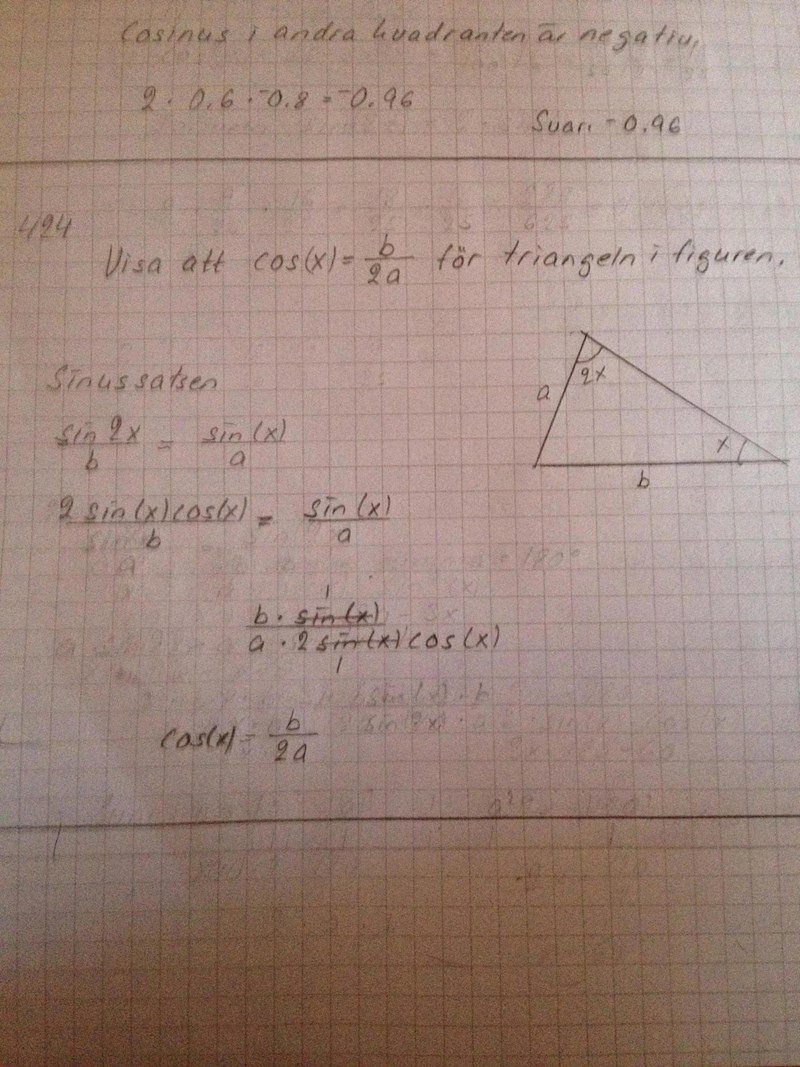 Cosinus i andra kvadranten är negativ.
2 · 0.6 · -0.8 = -0.96
Svar: -0.96
424
Visa att cos(x) = b/2a för triangeln i figuren.
2x
a
x
b
Sinussatsen
sin 2x/b = sin(x)/a
2 sin(x)cos(x)/b = sin(x)/a
1
b · sin(x)/a · 2 sin(x) cos(x)
1
cos(x) = b/2a